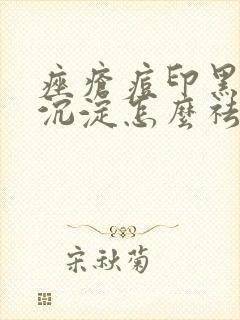 痤疮痘印黑
沉淀怎麼祛
宋秋菊